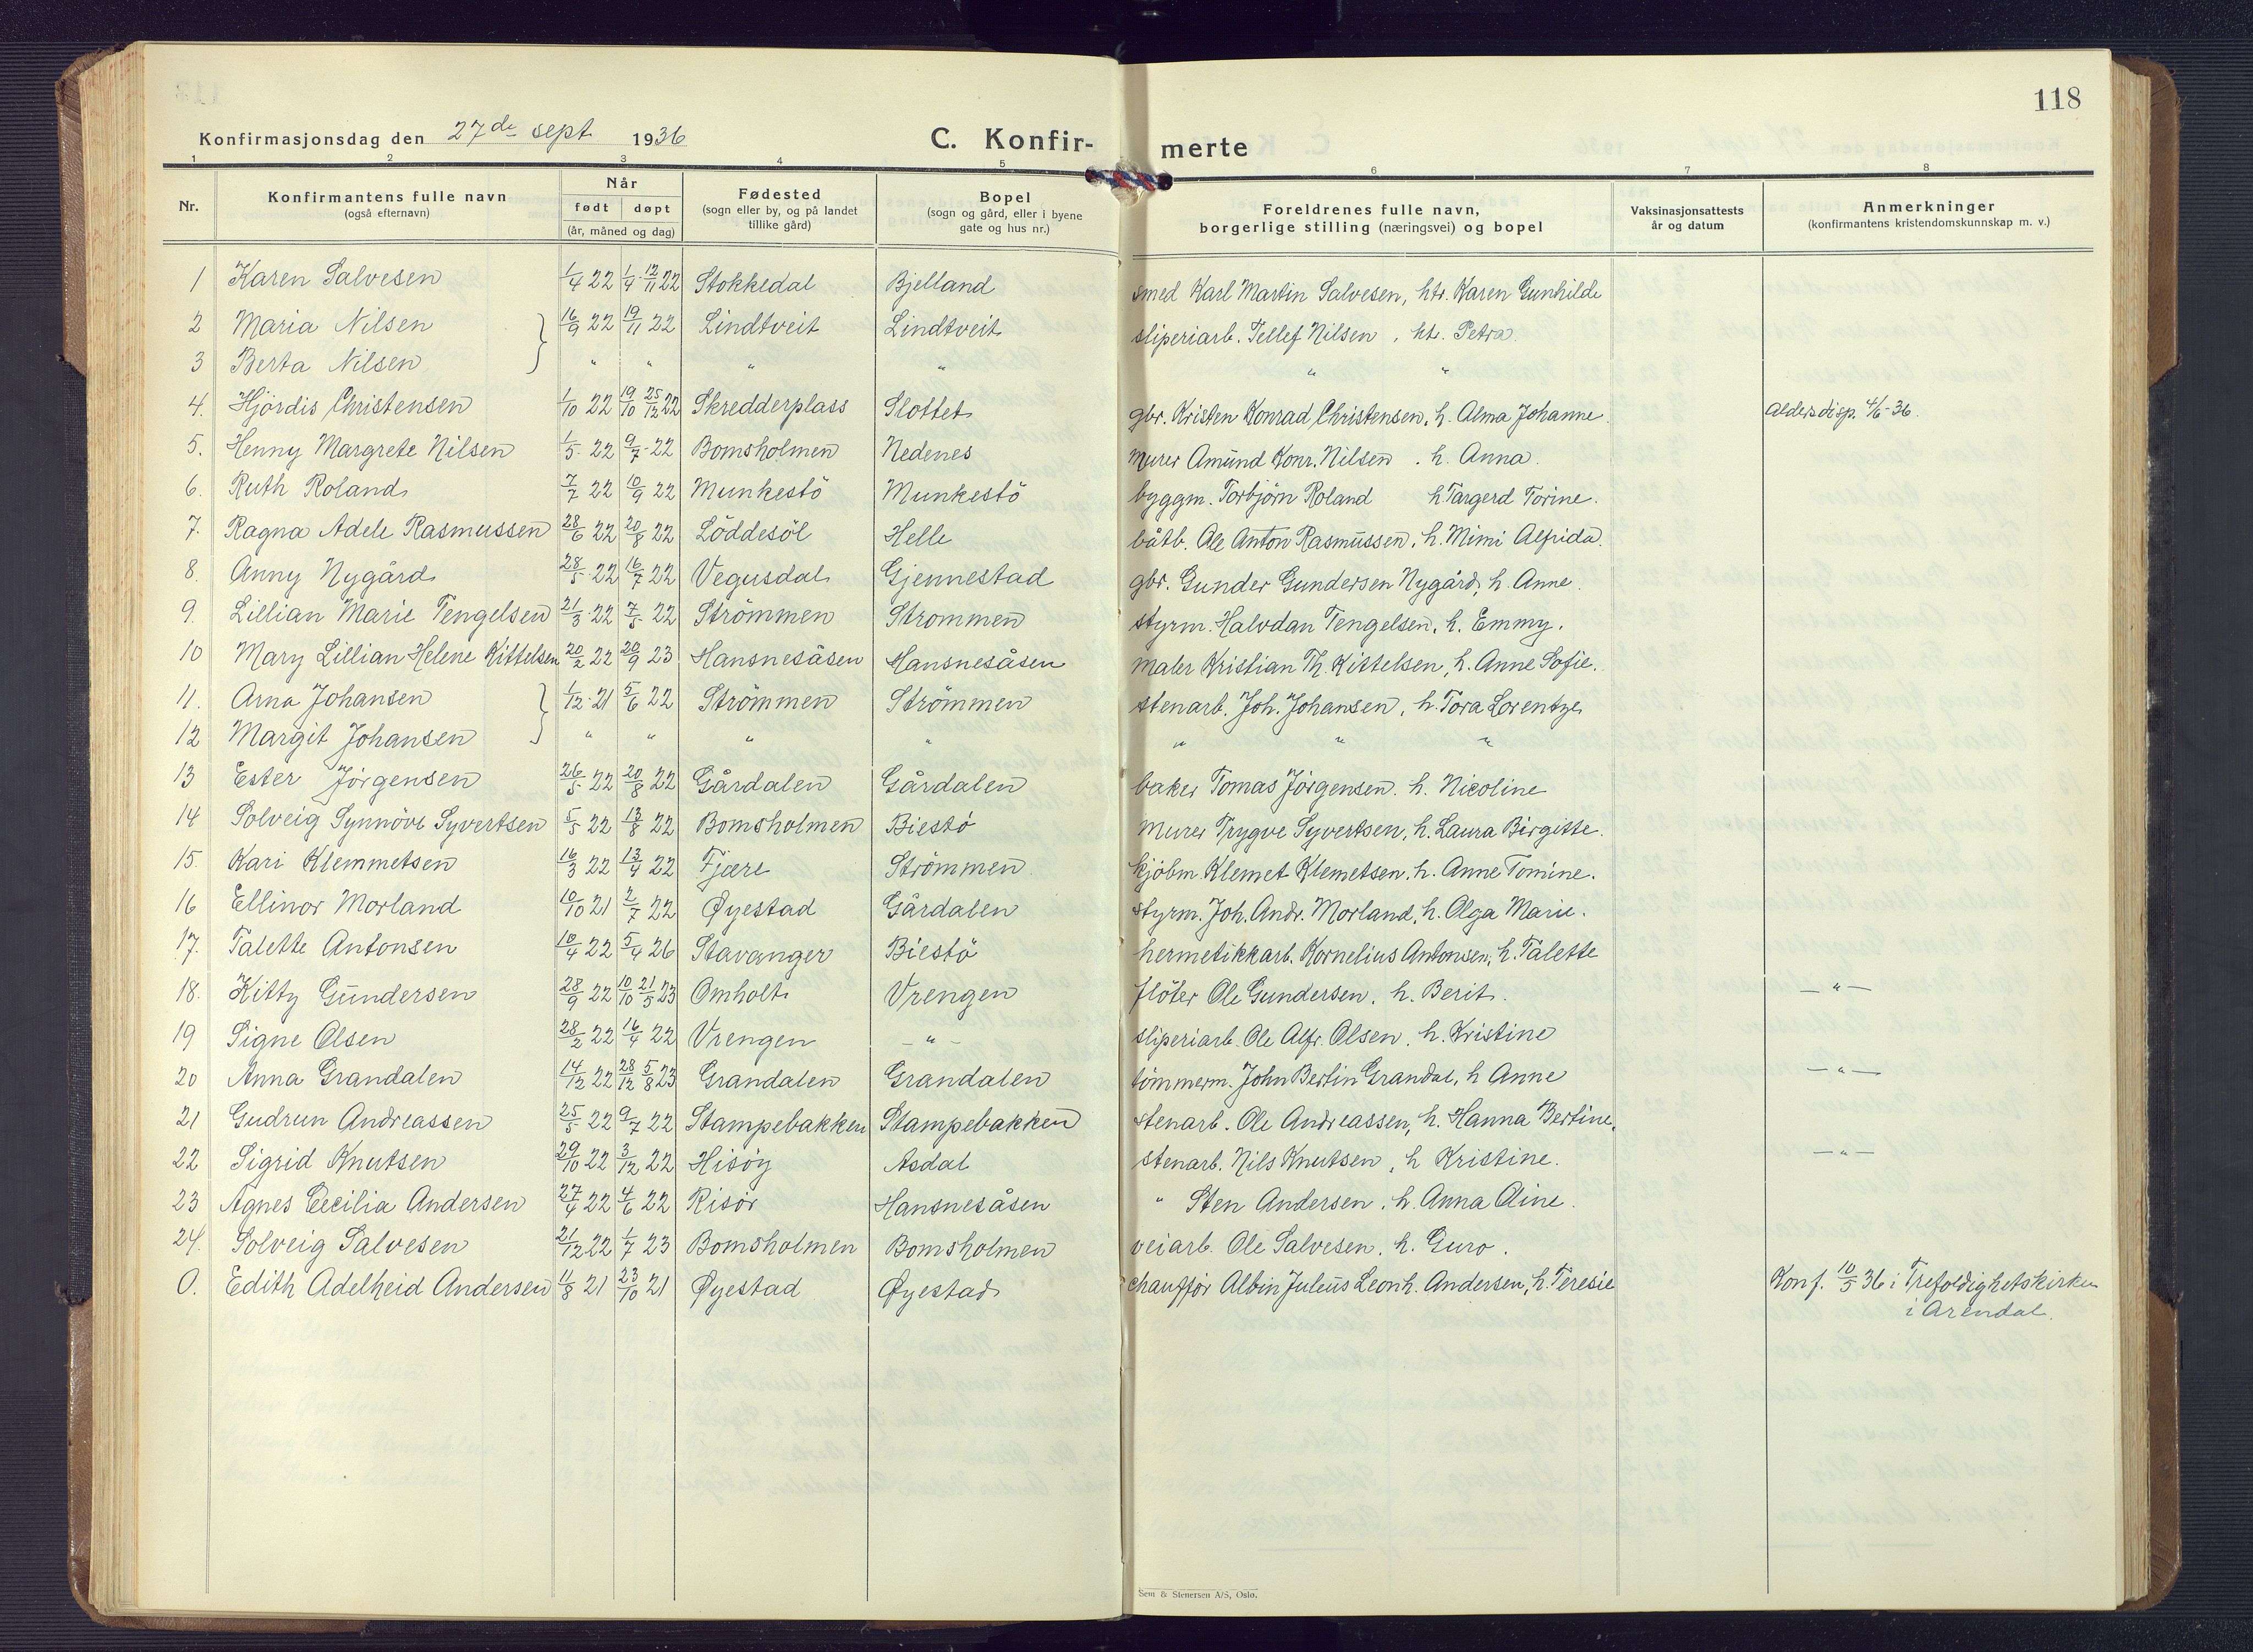 118
Konfirmasjonsdag den 27de sept. 1936 C. Konfir- merte
1 2 3 4 5 6 7 8
Nr. Konfirmantens fulle navn (også efternavn) Når født døpt (år, måned og dag) Fødested (sogn eller by, og på landet tillike gård) Bopel (sogn og gård, eller i byene gate og hus nr.) Foreldrenes fulle navn, borgerlige stilling (næringsvei) og bopel Vaksinasjonsattests år og datum Anmerkninger (konfirmantens kristendomskunnskap m. v.)
1 Karen Salvesen 1/4 22 1/4 - 12/11 22 Stokkedal Bjelland smed Karl Martin Salvesen, htr. Karen Gunhilde
2 Maria Nilsen } 16/9 22 19/11 22 Lindtveit Lindtveit sliperiarb. Tellef Nilsen, htr. Petra.
3 Berta Nilsen } " " " " " "
4. Hjördis Christensen 1/10 22 19/10 25/12 22 Skredderplass Slottet gbr. Kristen Konrad Christensen, h. Alma Johanne Aldersdisp. 4/6-36.
5. Henny Margrete Nilsen 1/5 22 9/7 22 Bomsholmen Nedenes murer Amund Konr. Nilsen. h. Anna.
6. Ruth Roland 7/7 22 10/9 22 Munkestö Munkestö byggm. Torbjörn Roland h. Targerd Torine.
7. Ragna Adele Rasmussen 28/6 22 20/8 22 Löddesöl Helle båtb. Ole Anton Rasmussen, h. Mimi Alfrida.
8. Anny Nygård 28/5 22 16/7 22 Vegusdal Gjennestad gbr. Gunder Gundersen Nygård, h. Anne.
9. Lillian Marie Tengelsen 21/3 22 7/5 22 Strömmen Strommen styrm. Halvdan Tengelsen, h. Emmy.
10 Mary Lillian Helene Kittelsen 20/2 22 20/9 23 Hansnesåsen Hansnesåsen maler Kristian Th. Kittelsen, h. Anne Sofie.
11. Arna Johansen } 1/12 21 5/6 22 Strömmen Strömmen stenarb. Joh. Johansen, h. Tora Lorentze
12 Margit Johansen } " " " " " " "
13 Ester Jörgensen 26/5 22 20/8 22 Gårdalen Gårdalen baker Tomas Jörgensen. h. Nicoline
14 Solveig Synnöve Syvertsen 5/5 22 13/8 22 Bomsholmen Biestö murer Trygve Syvertsen, h. Laura Birgitte.
15. Kari Klemmetsen 16/3 22 13/4 22 Fjære Strömmen kjöbm. Klemet Klemetsen. h. Anne Tomine.
16 Ellinor Morland 10/10 21 2/7 22 Øyestad Gårdalen styrm. Joh. Andr. Morland, h. Olga Marie.
17. Talette Antonsen 10/4 22 5/4 26 Stavanger Biestö hermetikkarb. Kornelius Antonsen, h. Talette
18. Kitty Gundersen 28/9 22 10/10 21/5 23 Omholt Vrengen flöter Ole Gundersen, h. Berit. — " —
19 Signe Olsen 28/2 22 16/4 22 Vrengen — " — sliperiarb. Ole Alfr. Olsen, h. Kristine
20 Anna Grandalen 14/12 22 28/12 5/8 23 Grandalen Grandalen tömmerm. John Bertin Grandal, h Anne — " —
21 Gudrun Andreassen 25/5 22 9/7 22 Stampebakken Stampebakken stenarb. Ole Andreassen, h. Hanna Bertine.
22 Sigrid Knutsen 29/10 22 3/12 22 Hisöy Asdal stenarb. Nils Knutsen, h Kristine. — " —
23 Agnes Cecilia Andersen 27/4 22 4/6 22 Risör Hansnesåsen " Sten Andersen, h. Anna Oline.
24. Solveig Salvesen 21/12 22 1/7 23 Bomsholmen Bomsholmen veiarb. Ole Salvesen, h. Guro.
0. Edith Adelheid Andersen 11/8 21 23/10 21 Øyestad Øyestad chaufför Albin Julius Leonh. Andersen, h. Teresie Konf. 10/5 36 i Trefoldighetskirken
i Arendal.
Sem & Stenersen A/S, Oslo.